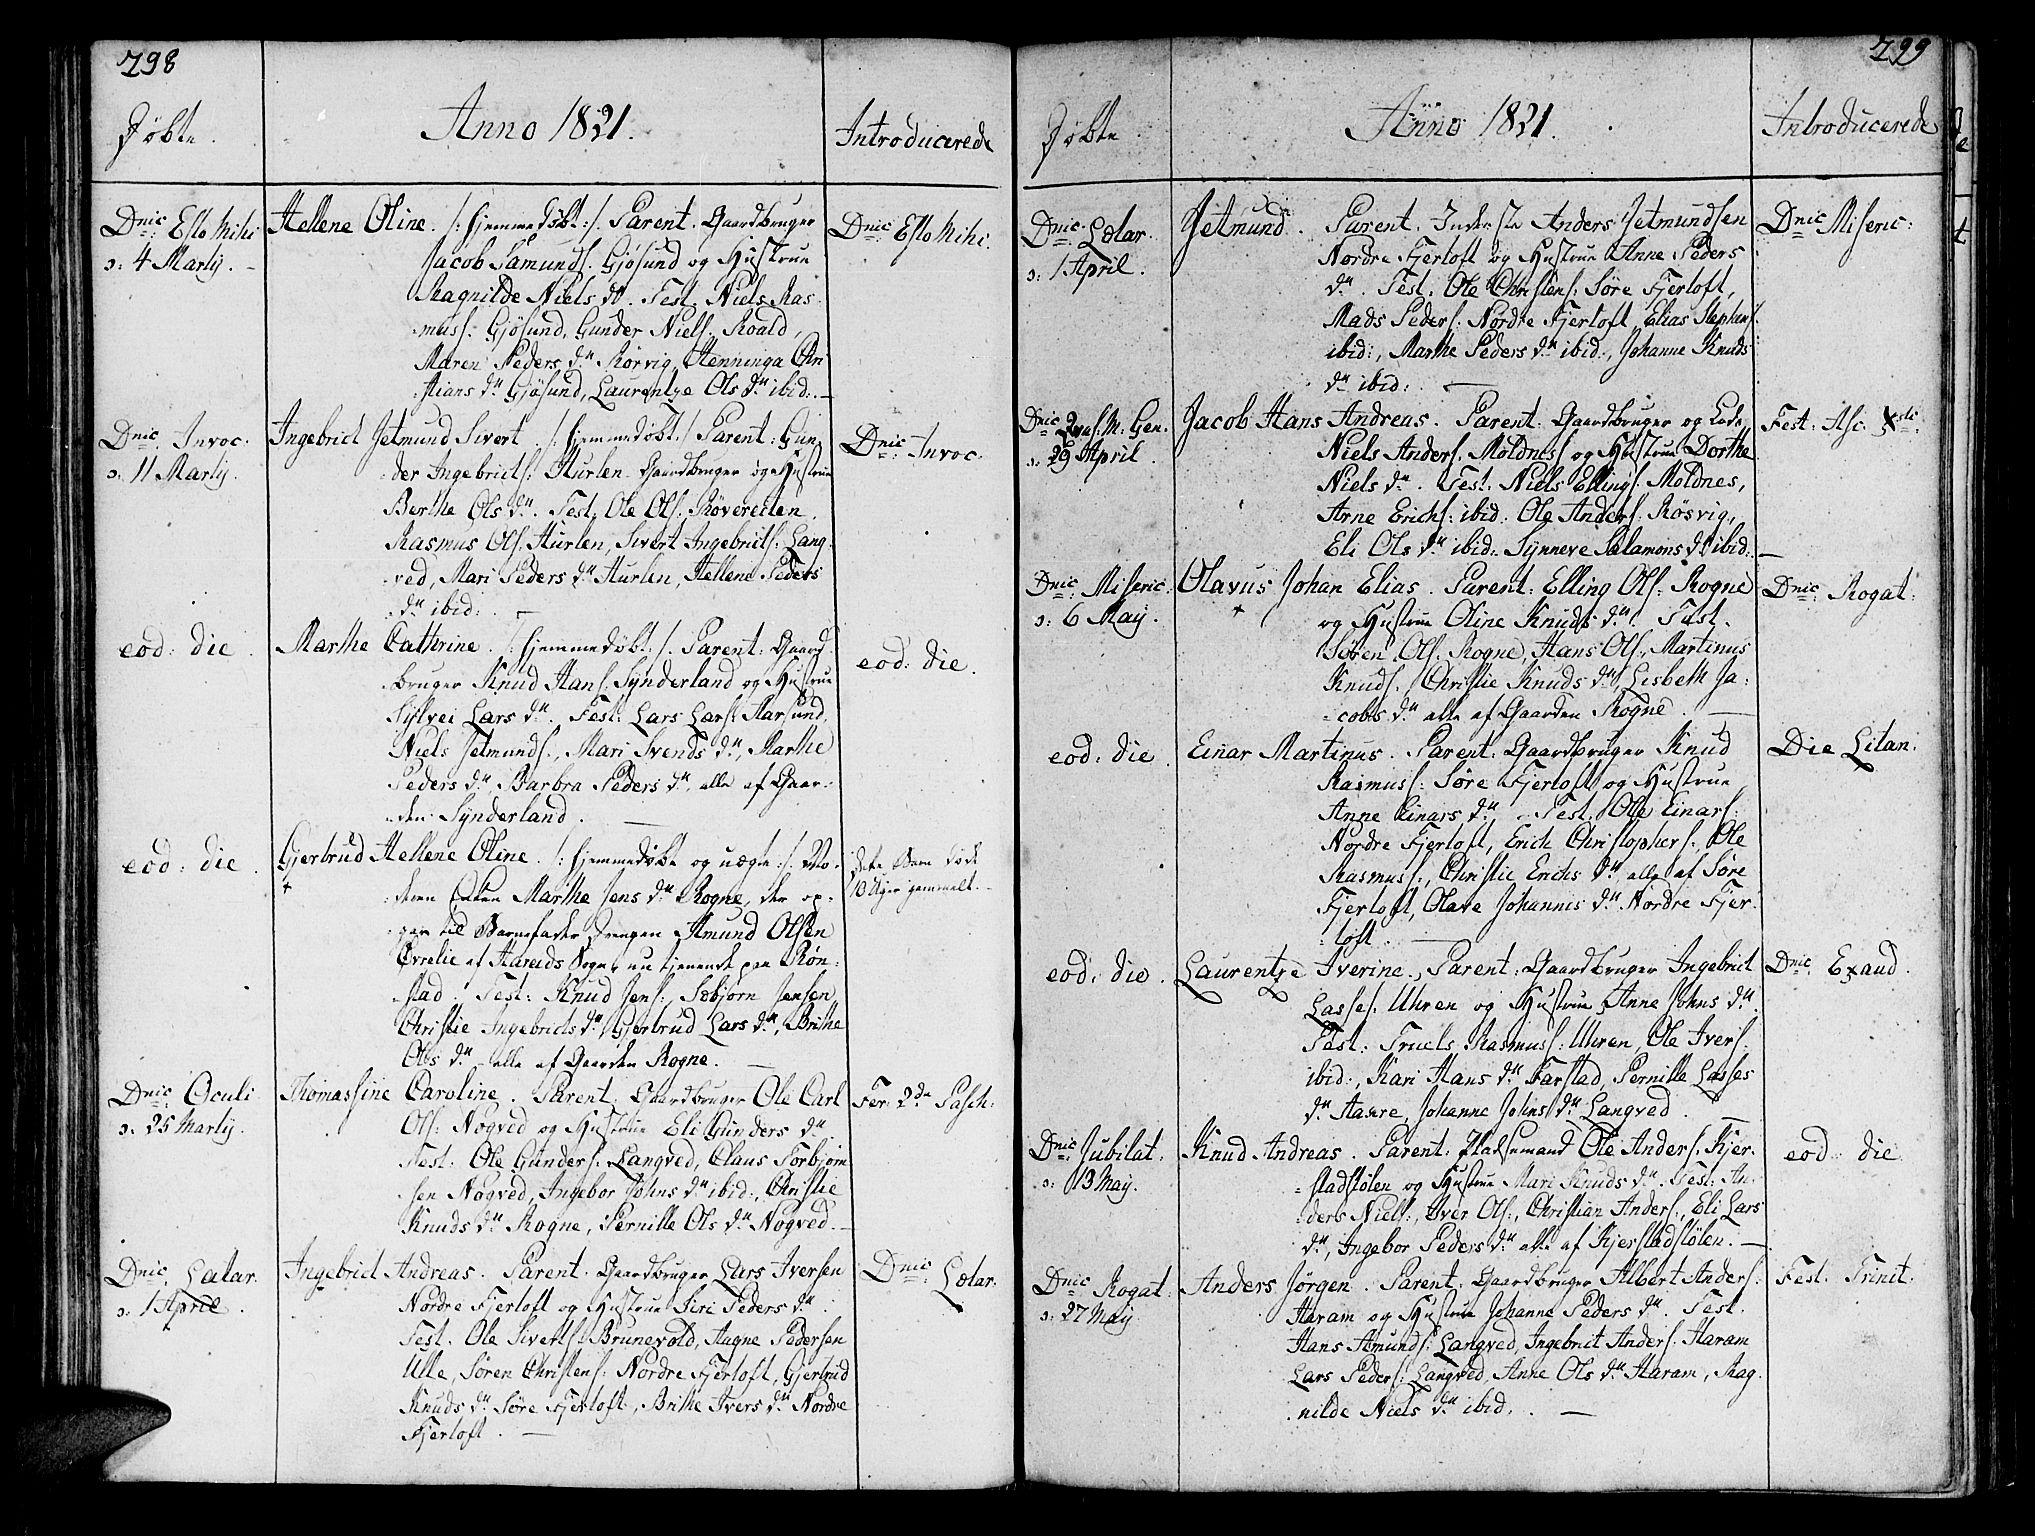 298
Döbte.
Anno 1821.
Introducerede
Dnic: Esto Mihi
ɔ: 4 Martij.
Hellene Oline. /: hjemmedöbt :/. Parent. Gaardbruger
Jacob Samunds. Gjösund og Hustrue
Ragnilde Niels dr. Test. Niels Ras-
mus: Gjösund, Gunder Niels. Roald,
Maren Peders dr Rörvig, Henninga Chri
stians dr Gjösund, Laurentze Ols dr ibid:
Dnic: Esto Mihi.
Dnic. Invoc:
ɔ: 11 Martij.
Ingebrict Jetmund Sivert. /: hjemmedöbt :/ Parent: Gun
der Ingebricts: Hurlen Gaardbruger og Hustrue
Berthe Ols dr. Test. Ole Ols. Röverecten
Rasmus Ols. Hurlen, Sivert Ingebricts: Lang
ved, Mari Peders dr Hurlen, Hellene Peders
dr ibid:
Dnic: Invoc.
eod: die.
Marthe Cathrine. /: hjemmedöbt :/. Parent: Gaard
bruger Knud Hans. Synderland og Hustrue
Sylvei Lars dr. Test: Lars Lars: Aarsund,
Niels Jetmunds., Mari Svends dr, Marthe
Peders dr, Barbra Peders dr, alle af Gaar-
den Synderland.
eod: die.
eod: die.
Gjertrud Hellene Oline. /: hjemmedöbt og uægte :/. Mo-
deren Enken Marthe Jens dr Rogne, der op-
gav til Barnefader Drengen Amund Olsen
Övrelie af Hareids Sogn, nu tjenende paa Rön-
stad. Test: Knud Jens:, Sæbjorn Jensen
Christie Ingebricts dr, Gjertrud Lars dr, Brithe
Ols dr alle af Gaarden Rogne.
Dette Barn döde
10 Uger gammelt.
Dnic: Oculi
ɔ: 25 Martij.
Thomassine Caroline. Parent. Gaardbruger Ole Carl
Ols: Nogved og Hustrue Eli Gunders dr
Test. Ole Gunders. Langved, Claus Torbjorn
sen Nogved, Ingebor Johns dr ibid:, Christie
Knuds dr Rogne, Pernille Ols dr Nogved.
Fer: 2da Pasch:
Dnic Lætar.
ɔ: 1 April.
Ingebrict Andreas. Parent. Gaardbruger Lars Iversen
Nordre Fjertoft og Hustrue Siri Peders dr.
Test. Ole Siverts: Brunevold, Aagne Pedersen
Ulle, Sören Christens: Nordre Fjertoft, Gjertrud
Knuds dr Söre Fjertoft, Brithe Ivers dr Nordre
Fjertoft.
Dnic: Lætar.
299
Döbte
Anno 1821.
Introducerede
Dnic. Lætar.
ɔ: 1 April.
Jetmund. Parent. Inderste Anders Jetmundsen
Nordre Fjertoft og Hustrue Anne Peders
dr. Test: Ole Christens: Söre Fjertoft,
Mads Peders: Nordre Fjertoft, Elias Stephens.
ibid:, Marthe Peders dr ibid:, Johanne Knuds
dr ibid:
Dnic Miseric:
Dnic Quas. M. Gen.
ɔ: 29 April.
Jacob Hans Andreas. Parent: Gaardbruger og
Niels Anders. Moldnes og Hustrue Dorthe
Niels dr. Test: Niels Ellings. Moldnes,
Arne Erichs: ibid: Ole Anders. Rösvig,
Eli Ols dr ibid: Synneve Salamons dr ibid:
Fest: Asc. Xsti.
Dnic: Miseric:
ɔ: 6 May.
Olavus Johan Elias. Parent: Elling Ols: Rogne
og Hustrue Oline Knuds dr. Test.
Sören Ols. Rogne, Hans Ols., Martinus
Knuds., Christie Knuds dr, Lisbeth Ja-
cobs dr alle af Gaarden Rogne.
Dnic: Rogat:
eod: die.
Einar Martinus. Parent: Gaardbruger Knud
Rasmus: Söre Fjertoft og Hustrue
Anne Einars dr. Test. Ole Einars:
Nordre Fjertoft, Erich Christophers., Ole
Rasmus:, Christie Erichs dr alle af Söre
Fjertoft, Olave Johannis dr Nordre Fjer
toft.
Die Litan:
eod: die.
Laurentze Iverine. Parent: Gaardbruger Ingebrict
Lasses. Uhren og Hustrue Anne Johns dr.
Test: Truels Rasmus: Uhren, Ole Ivers:
ibid:, Kari Hans dr Farstad, Pernille Lasses
dr Aakre, Johanne Johns dr Langved.
Dnic. Exaud.
Dnic Jubilat.
ɔ: 13 May.
Knud Andreas. Parent: Pladsemand Ole Anders. Kjer-
stadstölen og Hustrue Mari Knuds dr. Test: An-
ders Niels:, Iver Ols:, Christian Anders., Eli Lars
dr, Ingebor Peders dr alle af Kjerstadstölen.
eod: die.
Dnic Rogat:
ɔ: 27 May.
Anders Jörgen. Parent: Gaardbruger Albert Anders:
Haram og Hustrue Johanne Peders dr. Test.
Hans Amunds: Langved, Ingebrict Anders. Haram
Lars Peders: Langved, Anne Ols dr Haram, Rag
nilde Niels dr ibid.
Fest. Trinit.